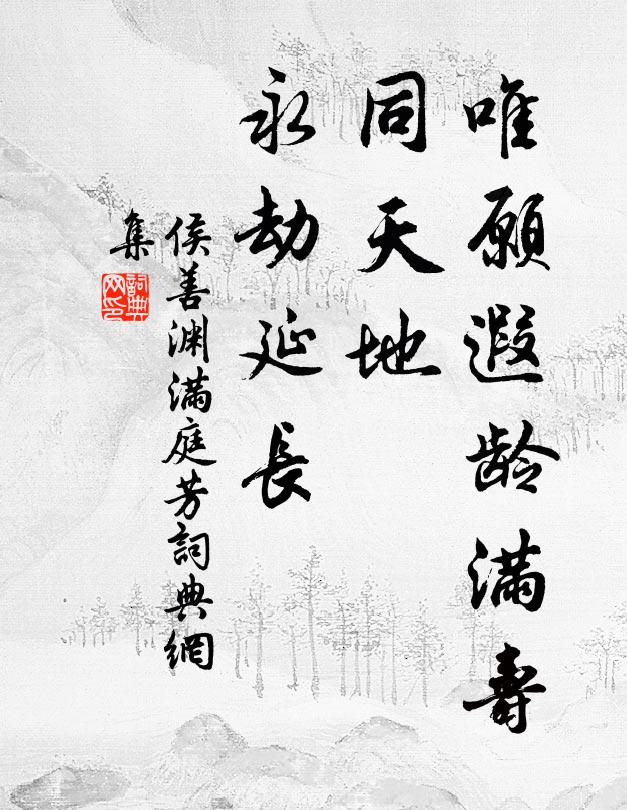 唯願遐龄滿壽
同天地
永劫延長
侯善渊滿庭芳詞典網
集
詞典
网印